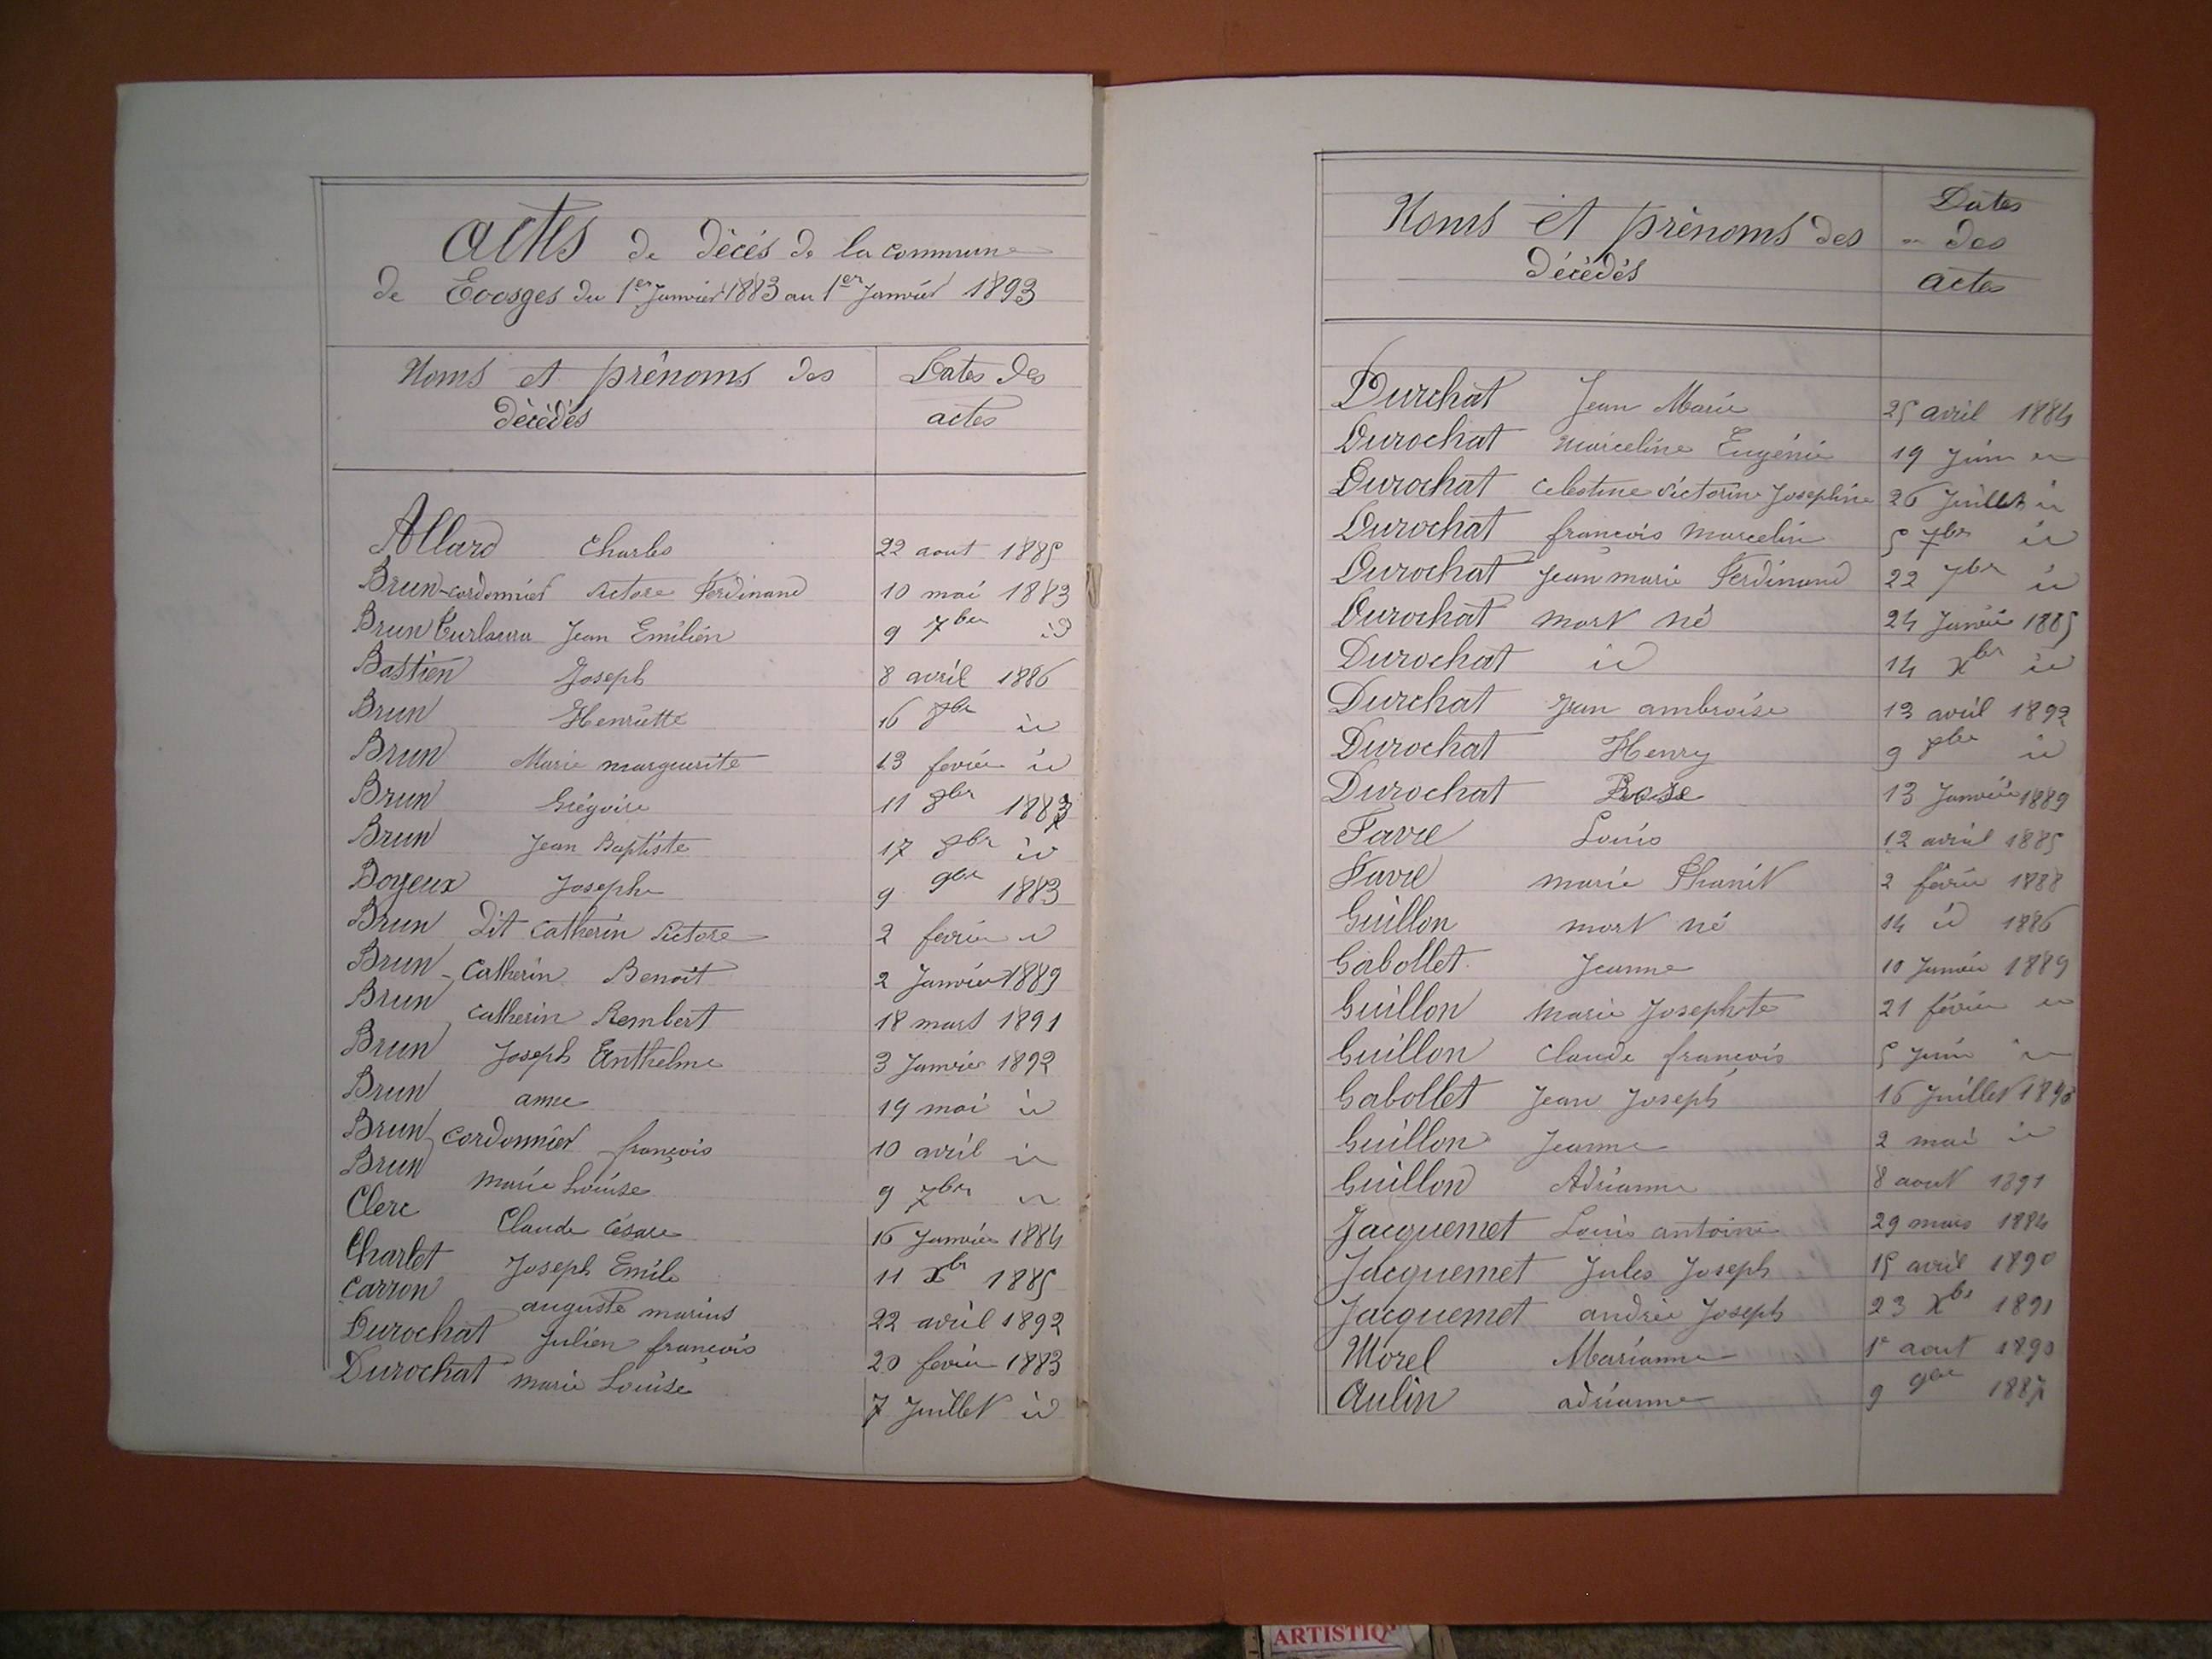 actes de décés de la commune
de Evosges du 1er Janvier 1883 au 1er Janvier 1893
Noms et prénoms des décédés
Dates des actes
Allard Charles 22 aout 1885
Brun-cordonnier Victore Ferdinand 10 mai 1883
Brun Jean Emilien 9 7bre id
Bastien Joseph 8 avril 1886
Brun Henriette 16 8bre id
Brun Marie marguerite 13 fevrier id
Brun Grégoire 11 8br
Brun Jean Baptiste 17 8br id
Boyeux Josephe 9 9bre 1883
Brun dit Catherin Victore 2 fevrier id
Brun-Catherin Benoit 2 Janvier 1889
Brun Catherin Rembert 18 mars 1891
Brun Joseph Anthelme 3 Janvier 1892
Brun anne 19 mai id
Brun, cordonnier françois 10 avril id
Brun Marie Louise 9 7bre id
Clerc Claude César 16 Janvier 1884
Charlet Joseph Emile 11 Xbr 1885
Carron auguste marius 22 avril 1892
Durochat Julien françois 20 fevrier 1883
Durochat marie Louise 7 Juillet id
Noms et prénoms des décédés
Dates des actes
Durchat Jean Marie 25 avril 1884
Durochat Marceline Eugénie 19 Juin id
Durochat Celestine Victorine Josephine 26 Juillet id
Durochat françois Marcelin 5 7bre id
Durochat Jean marie Ferdinand 22 7bre id
Durochat mort né 24 Janvier 1885
Durochat id 14 Xbr id
Durchat Jean ambroise 13 avril 1892
Durochat Henry 9 8bre id
Durochat Rose 13 Janvier 1889
Favre Louis 12 avril 1885
Favre marie 2 février 1888
Guillon mort né 14 id 1886
Gabollet Jeanne 10 Janvier 1889
Guillon Marie Josephte 21 février id
Guillon Claude françois 5 Juin id
Gabollet Jean Joseph 16 Juillet 1890
Guillon Jeanne 2 mai id
Guillon Adrianne 8 aout 1891
Jacquemet Louis antoine 29 mars 1884
Jacquemet Jules Joseph 15 avril 1890
Jacquemet andrée Joseph 23 Xbr 1891
Morel Marianne 1e aout 1890
Aulin adrianne 9 9bre 1887
ARTISTIQ